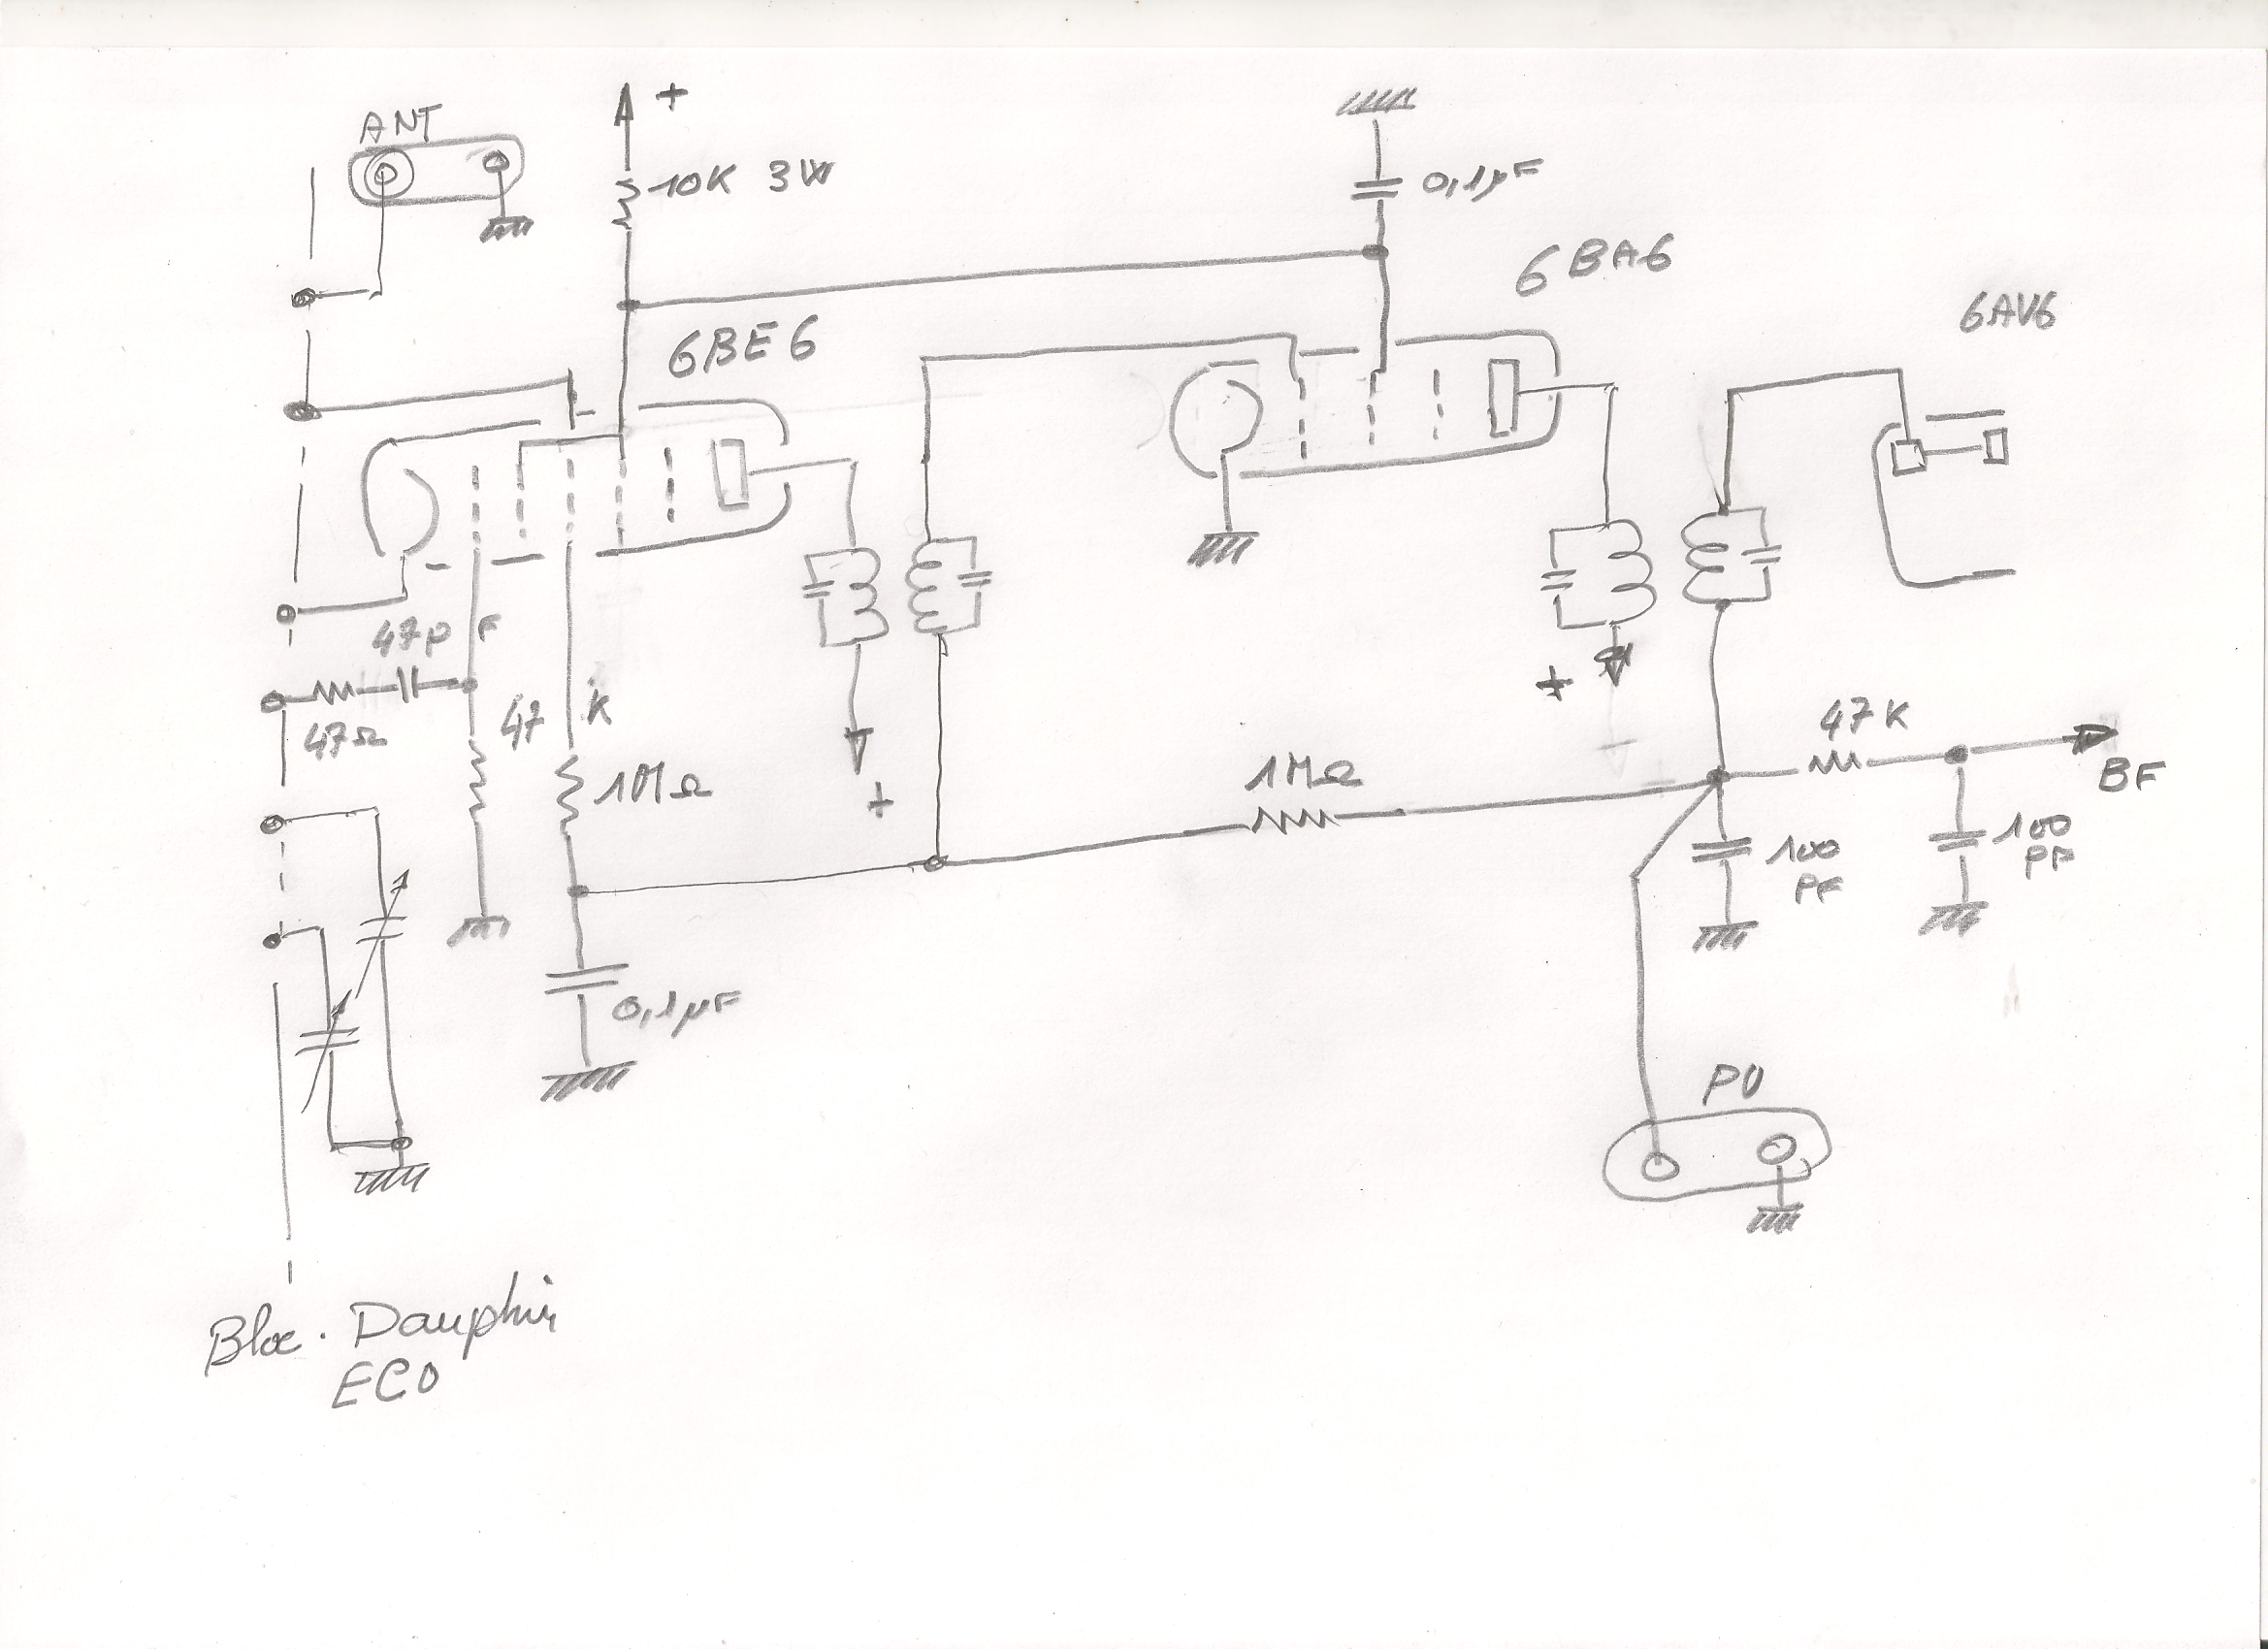 ANT
+
10K 3W
0,1µF
6BA6
6AV6
6BE6
47p F
47Ω
47 k
1MΩ
+
+
1MΩ
47K
BF
100
PF
100
PF
0,1µF
PU
Bloc. Dauphin
ECO